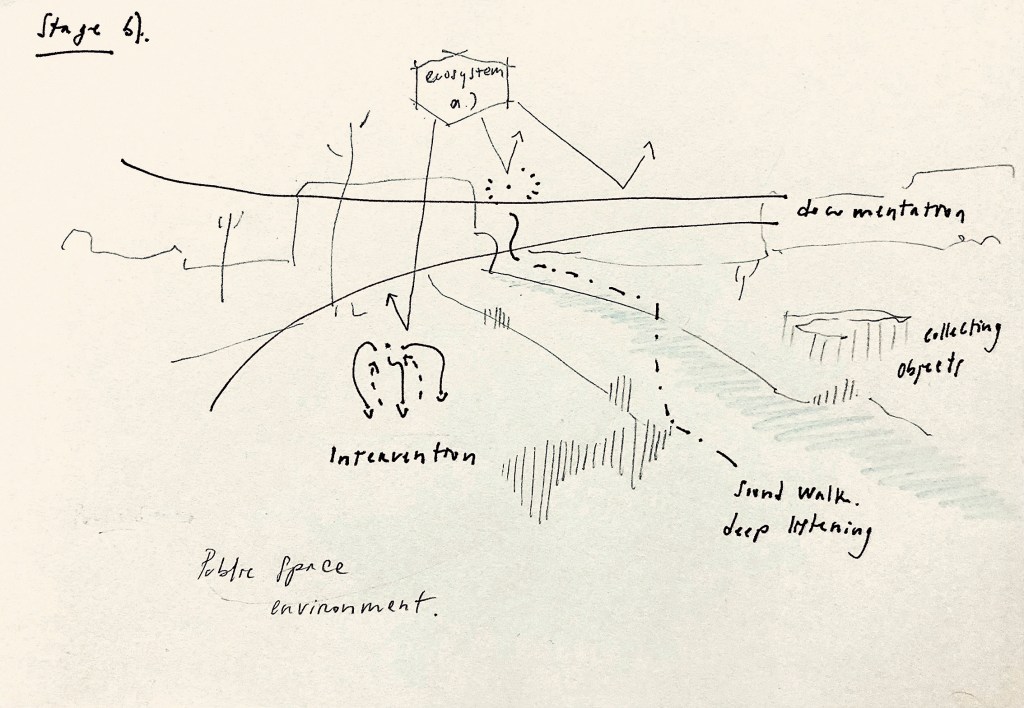 Stage b).
ecosystem
a.)
documentation
collecting
objects
Intervention
Sound walk.
deep listening
Public Space
environment.